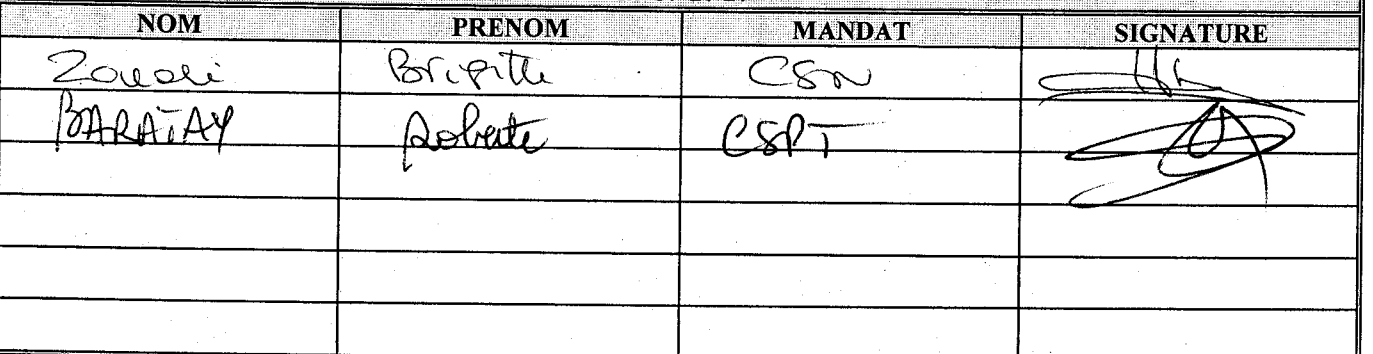 NOM PRENOM MANDAT SIGNATURE
Zouali Brigitte CSN
BARATAY Roberte CSPT